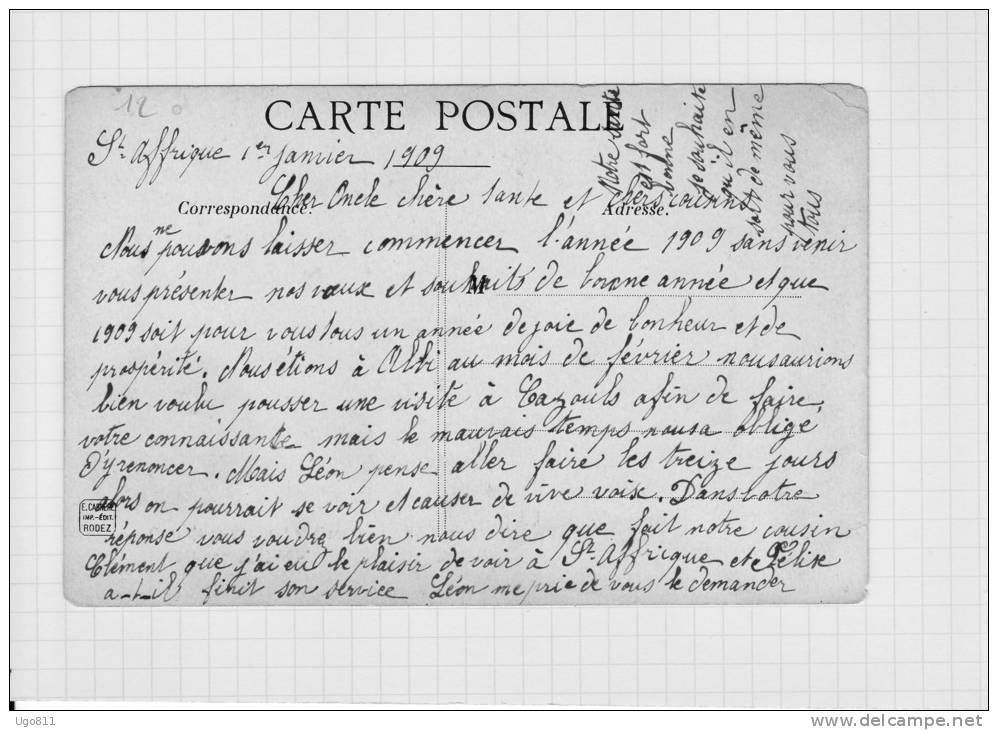 12
CARTE POSTALE
St Affrique 1er Janvier 1909
Cher Oncle chère tante et chers cousins
Correspondance. Adresse.
Nous ne pouvons laisser commencer l'année 1909 sans venir
vous présenter nos vœux et souhaits de bonne année et que
M
1909 soit pour vous tous un année de joie de bonheur et de
prospérité. Nous étions à Albi au mois de février nous aurions
bien voulu pousser une visite à Cazouls afin de faire
votre connaissance mais le mauvais temps nous a obligé
D'y renoncer. Mais Léon pense aller faire les treize jours
alors on pourrait se voir et causer de vive voix. Dans votre
réponse vous voudrez bien nous dire que fait notre cousin
Clément que j'ai eu le plaisir de voir à St Affrique et Félix
a-t-il finit son service Léon me prie de vous le demander
Notre santé
est fort
bonne
je souhaite
qu'il en
soit de même
pour vous
tous
IMP.-ÉDIT.
RODEZ
Ugo811
www.delcampe.net